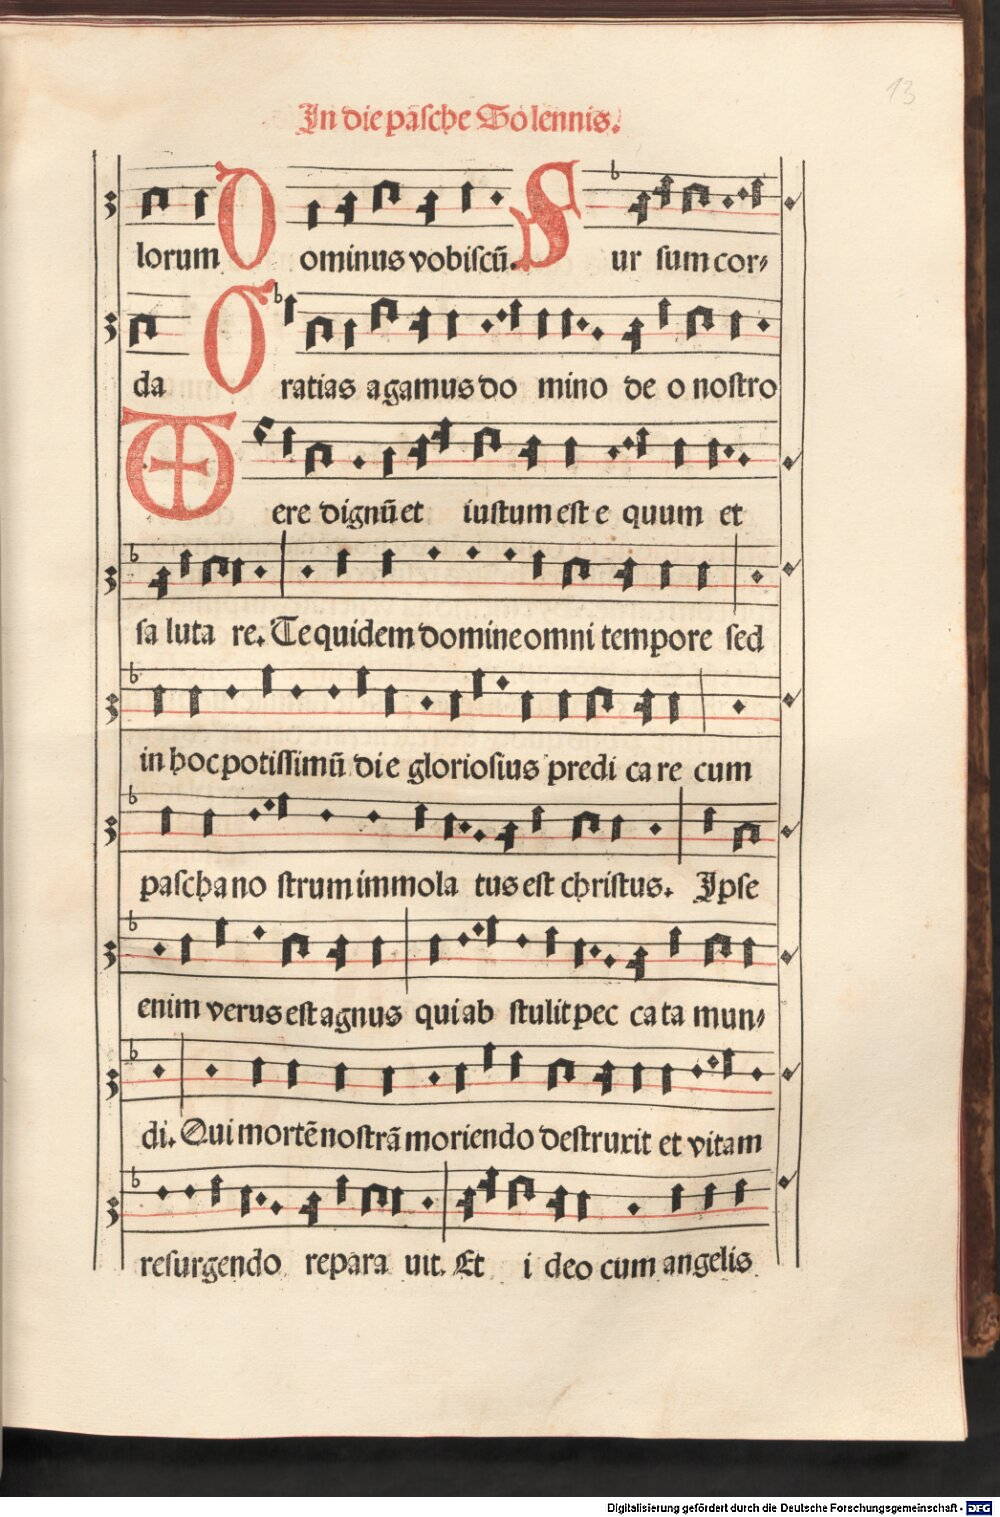 13
In die pasche Solennis.
lorum Dominus vobiscū. Sur sum cor-
da Gratias agamus do mino de o nostro
Uere dignū et iustum est e quum et
sa luta re. Te quidem domine omni tempore sed
in hoc potissimū die gloriosius predi ca re cum
pascha no strum immola tus est christus. Ipse
enim verus est agnus qui ab stulit pec ca ta mun-
di. Qui mortē nostrā moriendo destruxit et vitam
resurgendo repara uit. Et i deo cum angelis
Digitalisierung gefördert durch die Deutsche Forschungsgemeinschaft - DFG